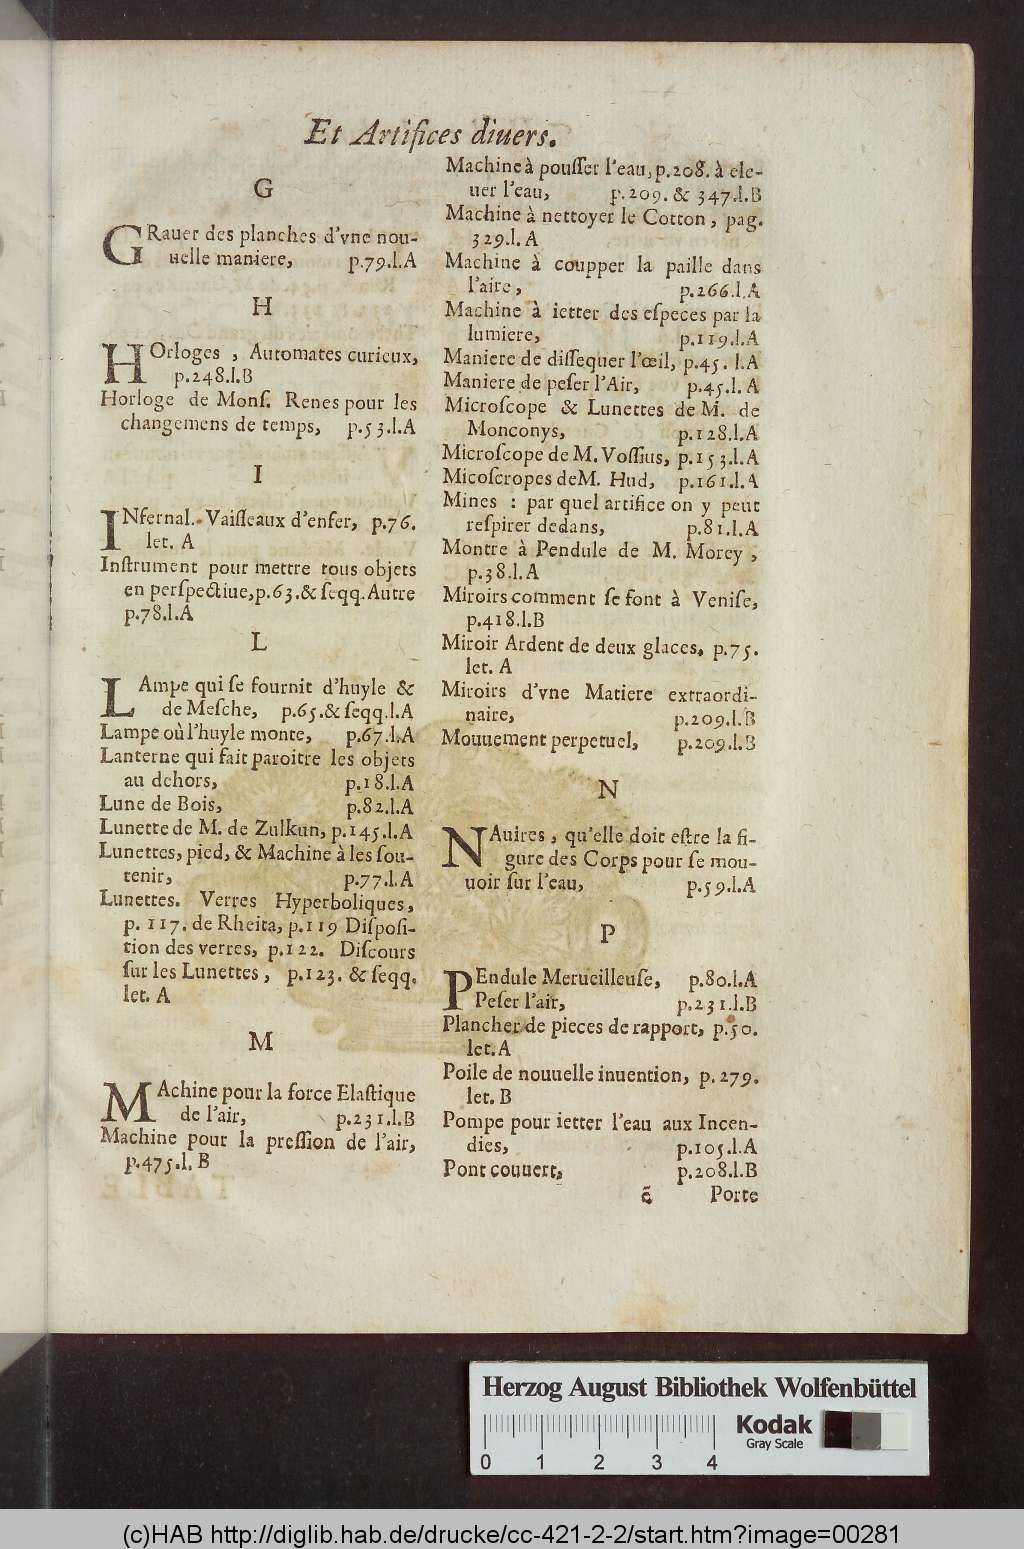 Et Artifices diuers.
G
GRauer des planches d'vne nou-
uelle maniere, p.79.l.A
H
HOrloges , Automates curieux,
p.248.l.B
Horloge de Monſ. Renes pour les
changemens de temps, p.53.l.A
I
INfernal. Vaiſſeaux d'enfer, p.76.
let. A
Inſtrument pour mettre tous objets
en perſpectiue,p.63.& ſeqq.Autre
p.78.l.A
L
LAmpe qui ſe fournit d'huyle &
de Meſche, p.65.& ſeqq.l.A
Lampe où l'huyle monte, p.67.l.A
Lanterne qui fait paroitre les objets
au dehors, p.18.l.A
Lune de Bois, p.82.l.A
Lunette de M. de Zulkun, p.145.l.A
Lunettes, pied, & Machine à les ſou-
tenir, p.77.l.A
Lunettes. Verres Hyperboliques,
p. 117. de Rheita, p.119 Diſpoſi-
tion des verres, p.122. Diſcours
ſur les Lunettes , p.123. & ſeqq.
let. A
M
MAchine pour la force Elaſtique
de l'air, p.231.l.B
Machine pour la preſſion de l'air,
p.475.l. B
Machine à pouſſer l'eau, p.208. à ele-
uer l'eau, p.209. & 347.l.B
Machine à nettoyer le Cotton , pag.
329.l. A
Machine à coupper la paille dans
l'aire , p.266.l.A
Machine à ietter des eſpeces par la
lumiere, p.119.l.A
Maniere de diſſequer l'œil, p.45. l.A
Maniere de peſer l'Air, p.45.l. A
Microſcope & Lunettes de M. de
Monconys, p.128.l.A
Microſcope de M. Voſſius, p.153.l.A
Micoſcropes de M. Hud, p.161.l.A
Mines : par quel artifice on y peut
reſpirer dedans, p.81.l.A
Montre à Pendule de M. Morey ,
p.38.l.A
Miroirs comment ſe font à Veniſe,
p.418.l.B
Miroir Ardent de deux glaces, p.75.
let. A
Miroirs d'vne Matiere extraordi-
naire, p.209.l.B
Mouuement perpetuel, p.209.l.B
N
NAuires , qu'elle doit eſtre la fi-
gure des Corps pour ſe mou-
uoir ſur l'eau, p.59.l.A
P
PEndule Merueilleuſe, p.80.l.A
Peſer l'air, p.231.l.B
Plancher de pieces de rapport, p.50.
let. A
Poile de nouuelle inuention, p. 279.
let. B
Pompe pour ietter l'eau aux Incen-
dies, p.105.l.A
Pont couuert, p.208.l.B
ẽ Porte
Herzog August Bibliothek Wolfenbüttel
Kodak
Gray Scale
0 1 2 3 4
(c)HAB http://diglib.hab.de/drucke/cc-421-2-2/start.htm?image=00281